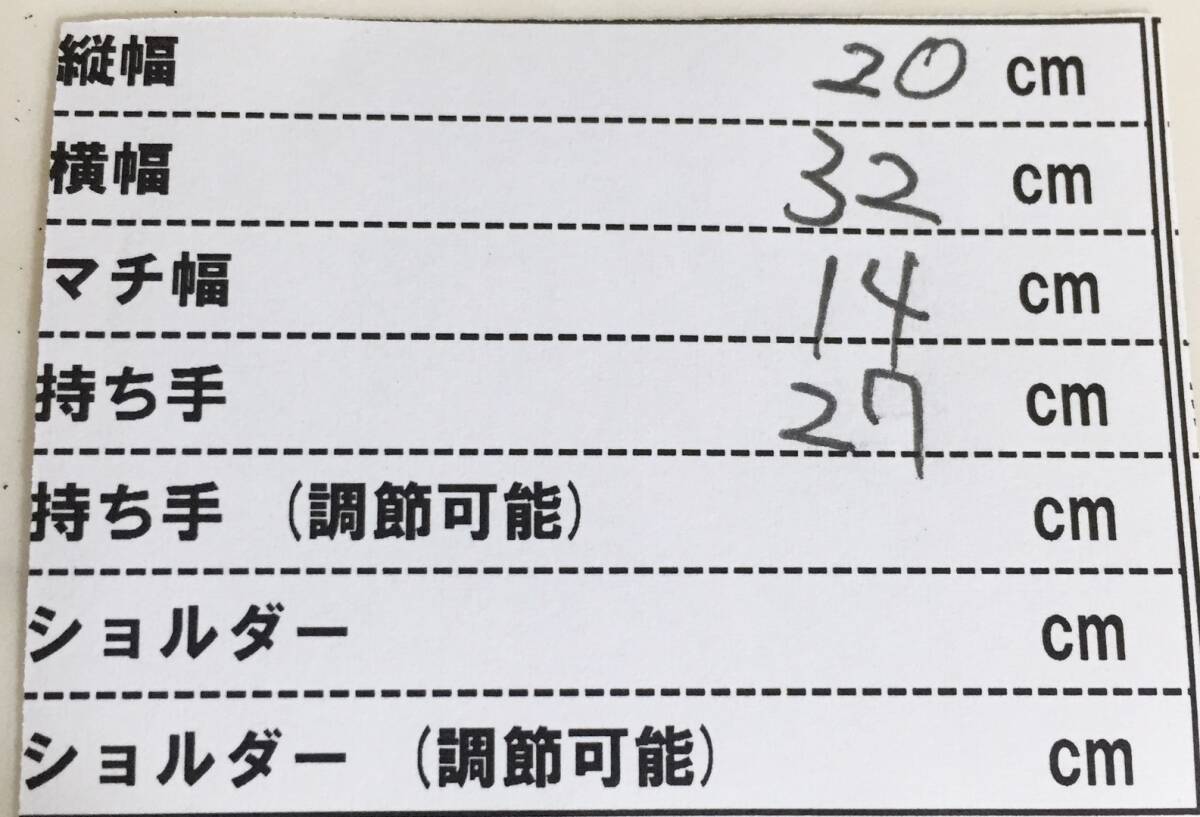 縦幅 20 cm
横幅 32 cm
マチ幅 14 cm
持ち手 27 cm
持ち手 (調節可能) cm
ショルダー cm
ショルダー (調節可能) cm